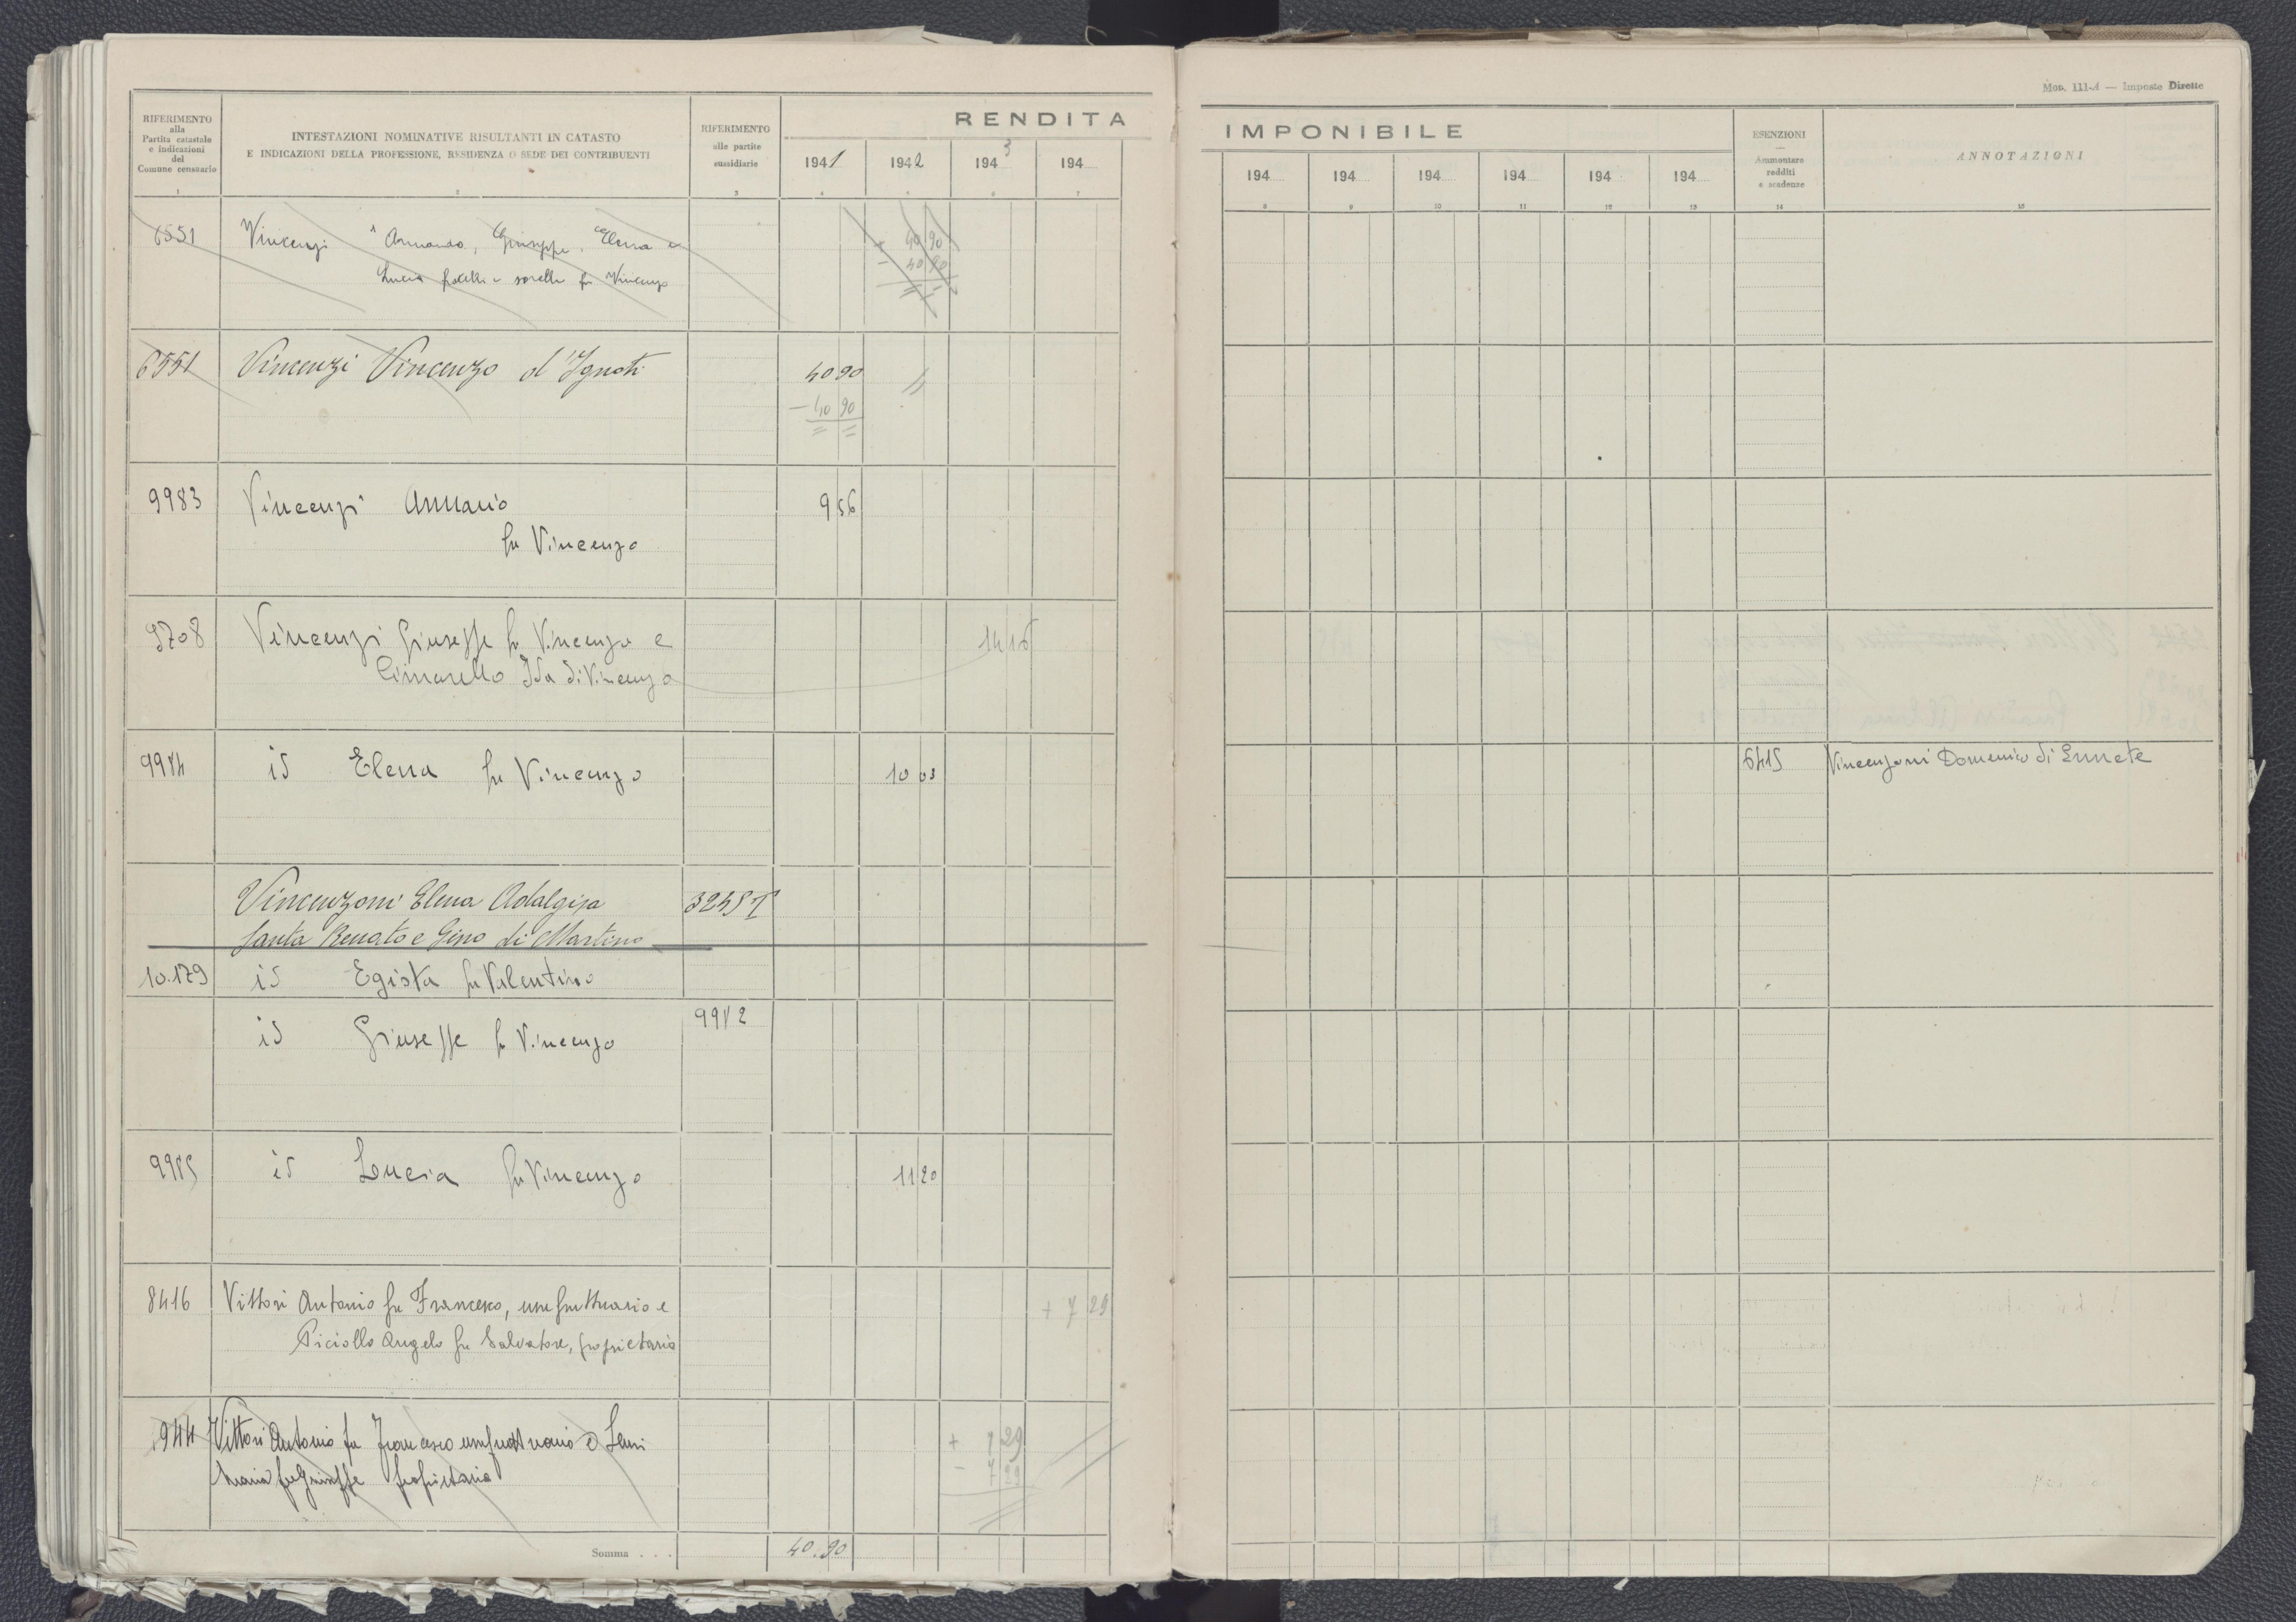 Mod. 111-A — Imposte Dirette
RIFERIMENTO
alla
Partita catastale
e indicazioni
del
Comune censuario
INTESTAZIONI NOMINATIVE RISULTANTI IN CATASTO
E INDICAZIONI DELLA PROFESSIONE, RESIDENZA O SEDE DEI CONTRIBUENTI
RIFERIMENTO
alle partite
sussidiarie
RENDITA IMPONIBILE
1941 1942 1943 194
194 194 194 194 194 194
ESENZIONI
—
Ammontare
redditi
e scadenze
ANNOTAZIONI
1 2 3 4 5 6 7 8 9 10 11 12 13 14 15
6551 Vincenzi Armando, Giuseppe, Elena e + 40 90
Lucia fratelli e sorelle fu Vincenzo - 40 90
6551 Vincenzi Vincenzo d'Ignoti 40 90
- 40 90
9983 Vincenzi Armando 9 56
fu Vincenzo
9708 Vincenzi Giuseppe fu Vincenzo e 14 16
Cimarello Ida di Vincenzo
9984 id Elena fu Vincenzo 10 03
6415 Vincenzoni Domenico di Ermete
Vincenzoni Elena Adalgisa 3245
Santa Renato e Gino di Martino
10.179 id Egista fu Valentino
id Giuseppe fu Vincenzo 9982
9985 id Lucia fu Vincenzo 11 20
8416 Vittori Antonio fu Francesco, usufruttuario e + 7 29
Piciollo Angelo fu Salvatore, proprietario
944 Vittori Antonio fu Francesco usufruttuario e Leuri + 7 29
Maria fu Giuseppe proprietaria - 7 29
Somma . . . 40.90